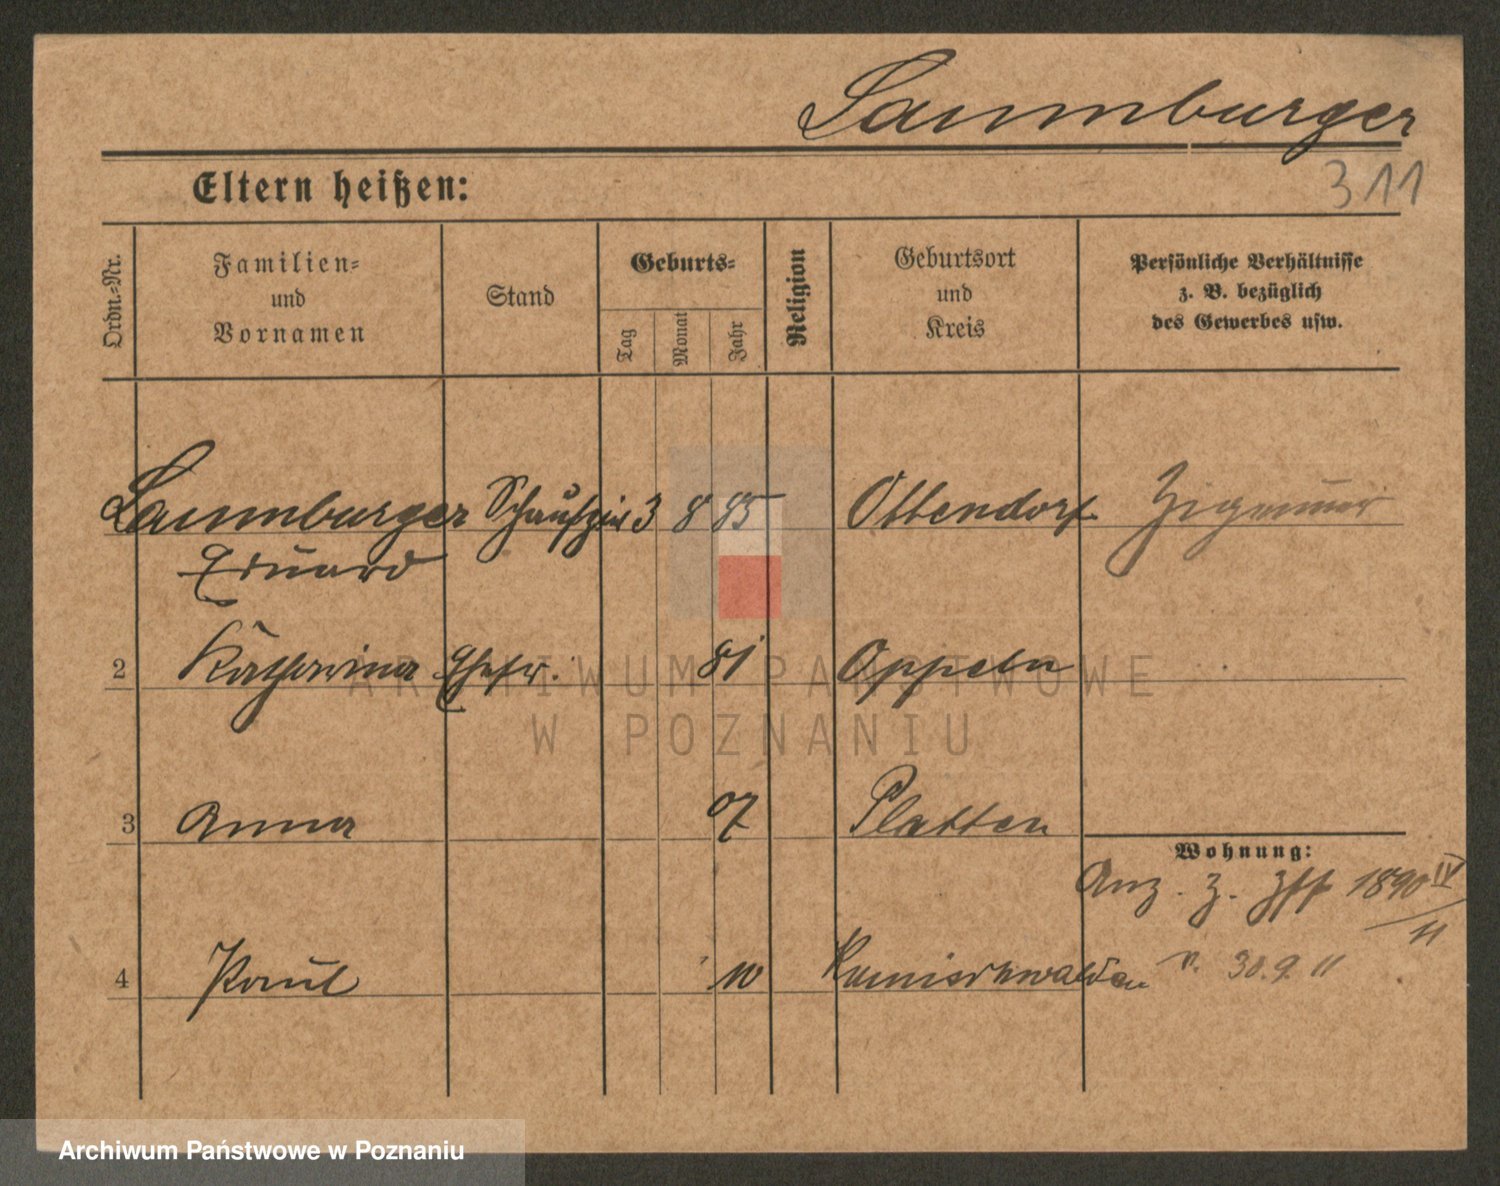 Laumburger
311
Eltern heißen:
Ordn.-Nr.
Familien-
und
Vornamen
Stand
Geburts-
Tag
Monat
Jahr
Religion
Geburtsort
und
Kreis
Persönliche Verhältnisse
z. B. bezüglich
des Gewerbes usw.
Laumburger 3 8 85 Ottendorf Zigeuner
Eduard
2 Katharina Ehefr. 81 Oppeln
3 Anna 07 Platten
Wohnung:
Anz. Z. 1890 IV
11
4 Paul 10 v. 30.9.11
ARCHIWUM PAŃSTWOWE
W POZNANIU
Archiwum Państwowe w Poznaniu